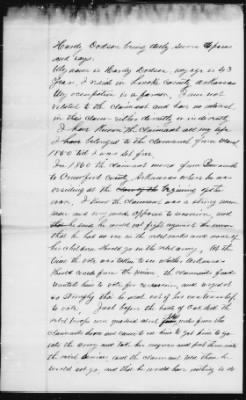 Hardy Dodson being duly sworn deposes
and says:
My name is Hardy Dodson my age is 43
years I reside in County Arkansas
My occupation is a farmer. I am not
related to the claimant and have no interest
in this claim either directly or indirectly
I have known the claimant all my life
I have belonged to the claimant from
1860 till I was set free
In 1860 the claimant moved from
to Crawford County, Arkansas where he was
residing at the beginning of the
war. I knew the claimant was a strong union
man and very much opposed to secession, and
said he would not fight against the union
that he had no one in the rebel and none of
his children should go in the rebel army. At the
time the vote was taken to see whether Arkansas
should secede from the union the claimants friends
wanted him to vote for secession, and urged it
so strongly that he went out of his own township
to vote. Just before the battle of the
rebel troops were quartered about miles from the
claimants house and came to see him to get him to go
into the army and take his negroes and go with
the rebel and the claimant told them he
would not go, and that he would have nothing to do